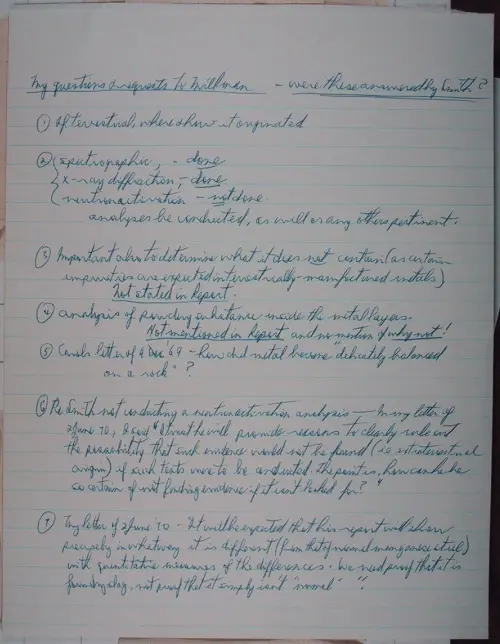 My questions & requests to Millman - were these answered by Smith?
① If terrestrial, where & how it originated
② { spectrographic, - done
{ x-ray diffraction, - done
{ neutron activation - not done
analyses be conducted, as well as any others pertinent.
③ Important also to determine what it does not contain (as certain
impurities are expected in terrestrially-manufactured metals)
Not stated in Report.
④ analysis of powdery substance inside the metal layers.
Not mentioned in Report and no mention of why not!
⑤ letter of 4 Dec '69 - How did metal become "delicately balanced
on a rock"?
⑥ Re Smith not conducting a neutron activation analysis — In my letter of
2 June 70, I said "I trust he will provide reasons to clearly rule out
the possibility that such evidence would not be found (i.e. extraterrestrial
origin) if such tests were to be conducted. The point is, how can he be
so certain of not finding evidence if it isn't looked for?"
⑦ My letter of 2 June '70 - It will be expected that his report will show
precisely in what way it is different (from that of normal manganese steel)
with quantitative measures of the differences. We need proof that it is
foundry slag, not proof that it simply isn't "normal" "!